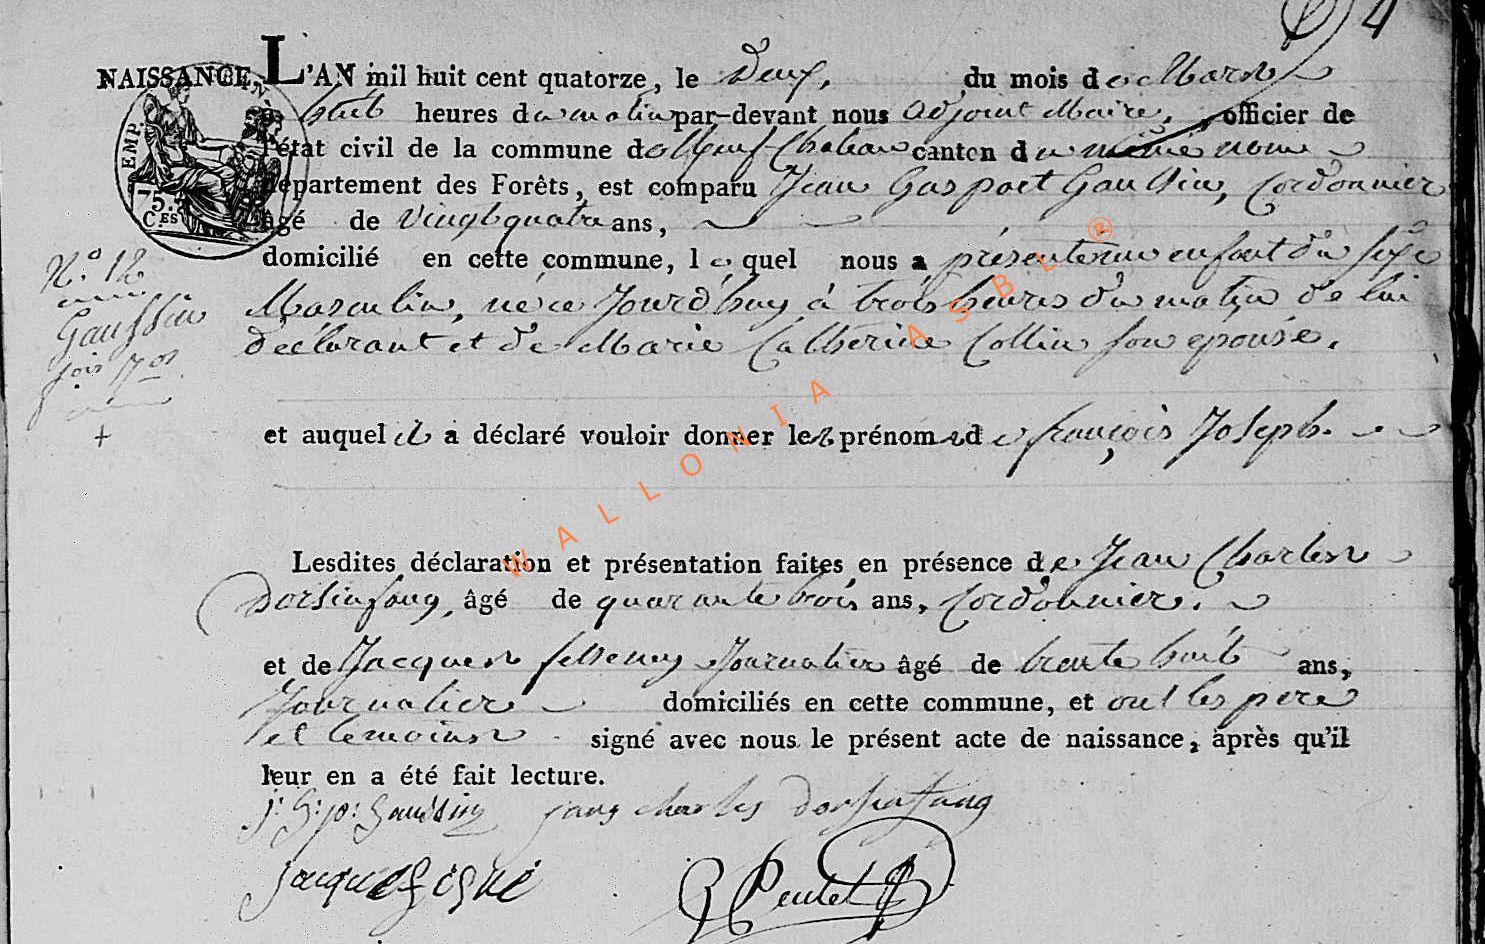 4
NAISSANCE.
L'AN mil huit cent quatorze, le Deux, du mois de Mars
à huit heures du matin par-devant nous adjoint Maire, officier de
l'état civil de la commune de Neuf-Chateau canton du même nom
département des Forêts, est comparu Jean Gaspart Gaussin, Cordonnier
âgé de vingt quatre ans,
domicilié en cette commune, lequel nous a présenté un enfant du sexe
Masculin, né ce Jourd'huy à trois heures du matin de lui
déclarant et de Marie Catherine Collin son epouse.
et auquel il a déclaré vouloir donner les prénoms de françois Joseph.
Lesdites déclaration et présentation faites en présence de Jean Charles
Dorsinfang, âgé de quarante trois ans, Cordonnier.
et de Jacques Journalier âgé de trente huit ans,
Journalier domiciliés en cette commune, et ont les pere
et temoins signé avec nous le présent acte de naissance, après qu'il
leur en a été fait lecture.
J: G:p: Gaussin jang charles dorsinfang
jacque
EMP.
75.
C.ES
N.o 12
Gaussin
WALLONIA ASBL ®